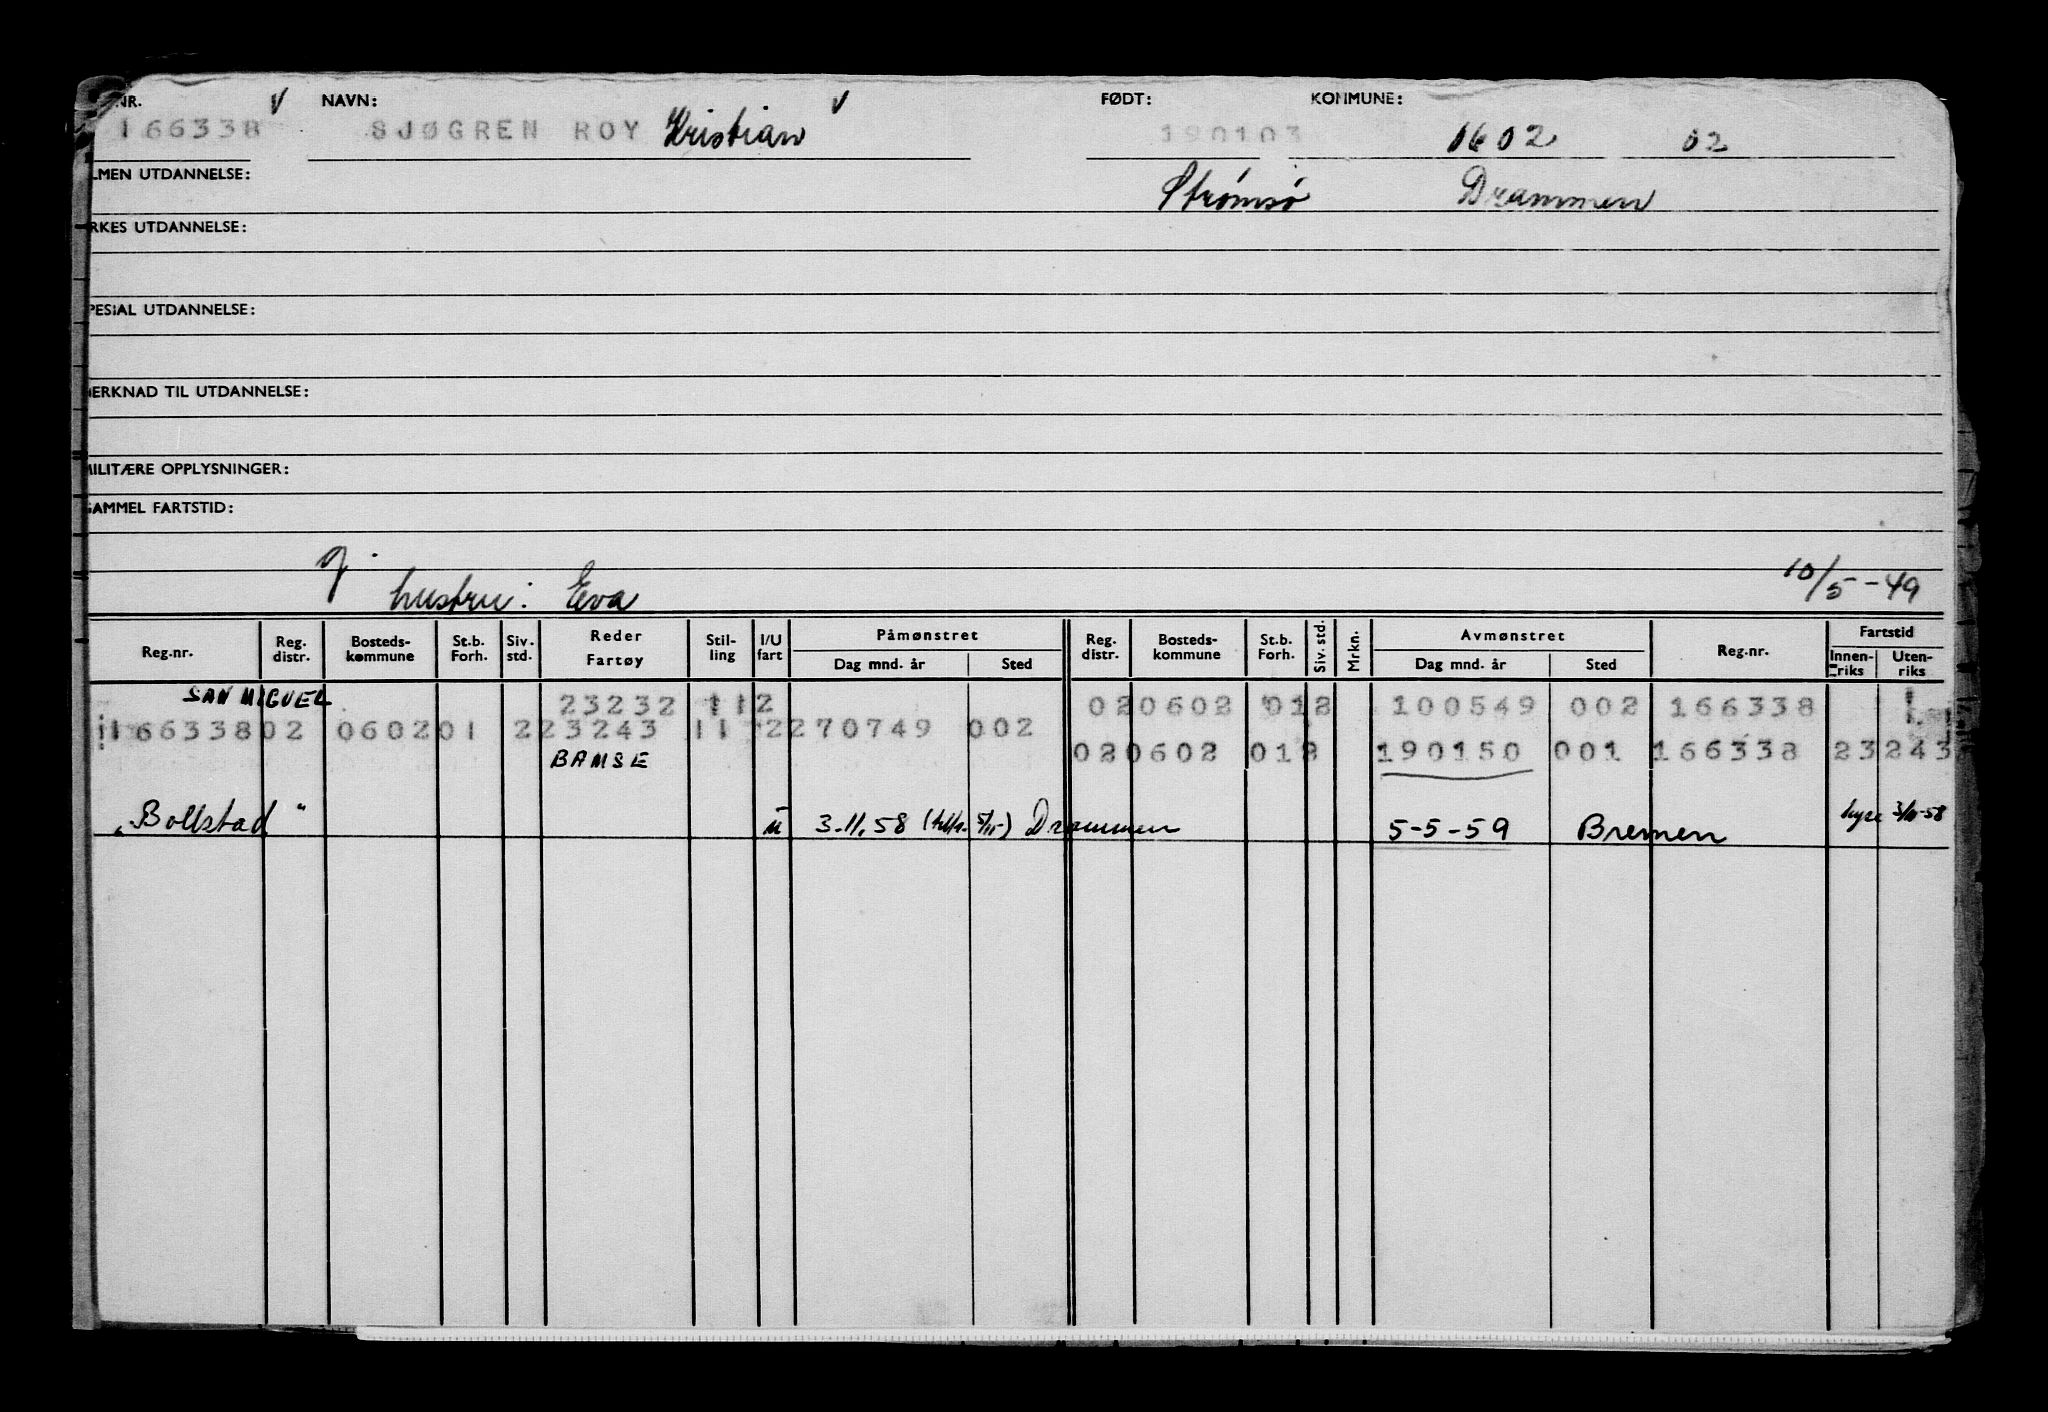 NR. V NAVN: V FØDT: KOMMUNE:
166338 SJØGREN ROY Kristian 190103 0602 02
LMEN UTDANNELSE: Strømsø Drammen
RKES UTDANNELSE:
PESIAL UTDANNELSE:
MERKNAD TIL UTDANNELSE:
MILITÆRE OPPLYSNINGER:
GAMMEL FARTSTID:
g.
hustru: Eva 10/5-49
Reg.nr. Reg. distr. Bosteds-kommune St.b. Forh. Siv. std. Reder Fartøy Stil-ling I/U fart Påmønstret Dag mnd. år Sted Reg. distr. Bosteds-kommune St.b. Forh. Siv. std. Mrkn. Avmønstret Dag mnd. år Sted Reg.nr. Fartstid Innen-riks Uten-riks
SAN MIGUEL 23232 112 020602 012 100549 002 166338 1
166338 02 060201 223243 11 2270749 002
BAMSE 020602 012 190150 001 166338 23243
"Bollstad" u 3.11.58 5/11) Drammen 5-5-59 Bremen hyre 3/11-58